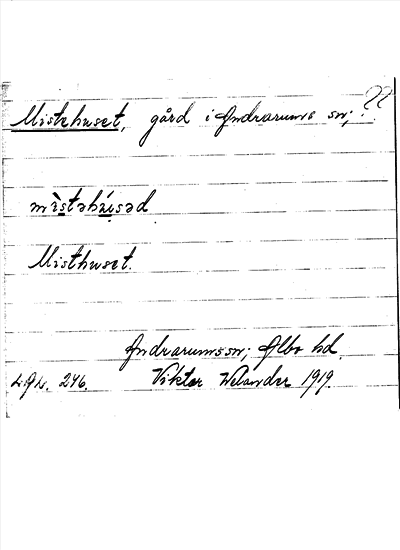 Mistehuset, gård i Andrarums sn; ??
mìstəhúsəd
Misthuset.
Andrarums sn; Albo hd.
Viktor Welander 1919.